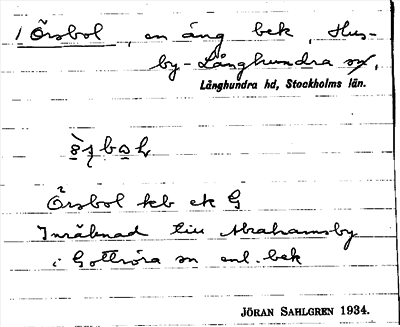 1 Örsbol, en äng bek, Hus-
by-Långhundra sn,
Långhundra hd, Stockholms län.
Örsbol kb ek G
Inräknad till Abrahamsby
i Gottröra sn enl. bek
JÖRAN SAHLGREN 1934.